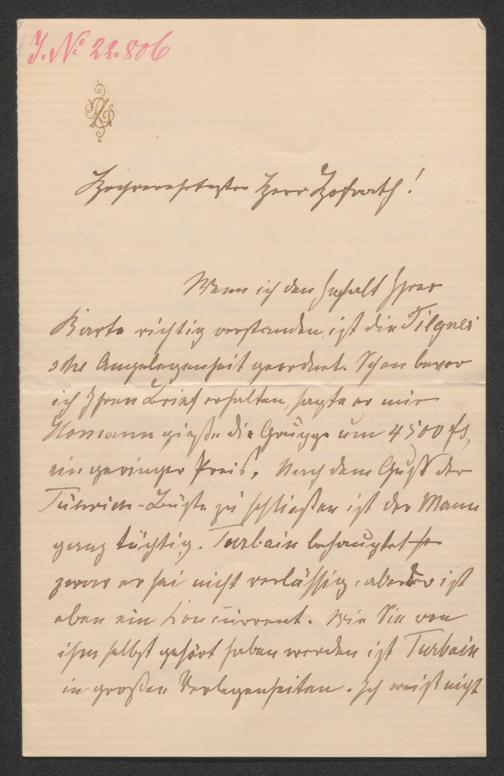 J. No 22.806
Hochverehrtester Herr Hofrath!
Wenn ich den Inhalt Ihrer
Karte richtig verstanden, ist die Tilgner
sche Angelegenheit geordnet. Schon bevor
ich Ihren Brief erhalten, sagte er mir
Homann gieße die Gruppe um 4500 fl,
ein geringer Preis. Nach dem Guß der
Führich-Büste zu schließen ist der Mann
ganz tüchtig. Turbain behauptet
zwar er sei nicht verlässig, aber der ist
eben ein Concurrent. Wie Sie von
ihm selbst gehört haben werden ist Turbain
in großen Verlegenheiten. Ich weiß nicht